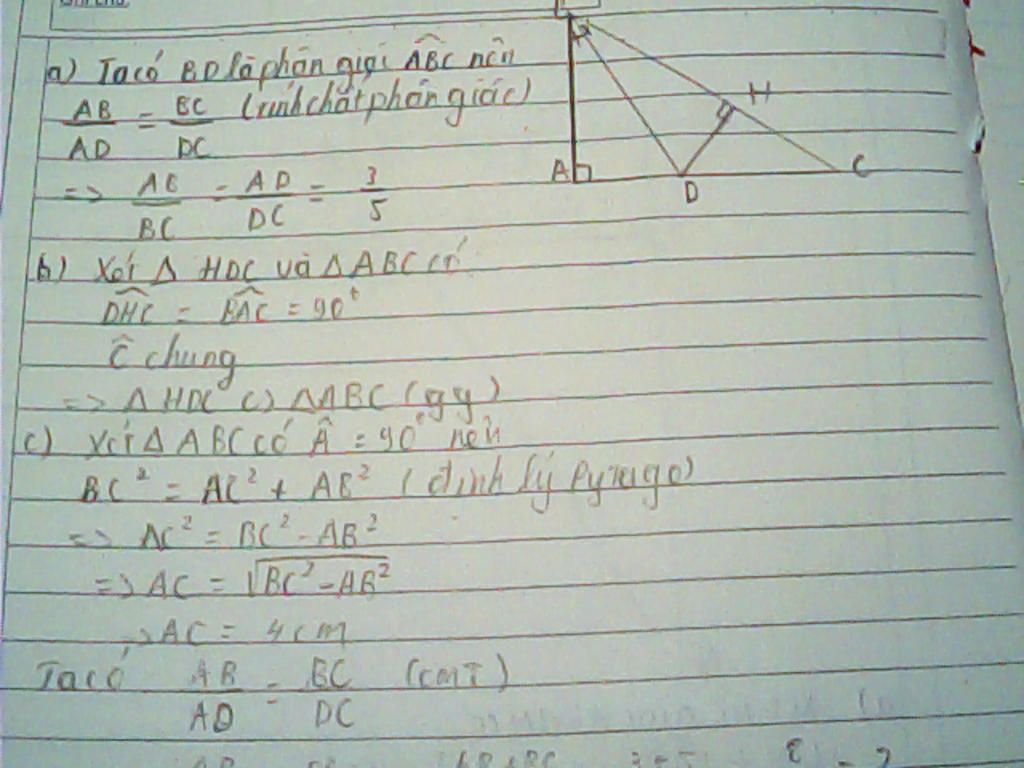 a) Ta có BD là phân giác ABC nên
AB/AD = BC/DC (tính chất phân giác)
=> AB/BC = AD/DC = 3/5
b) Xét Δ HDC và Δ ABC có
DHC = BAC = 90°
Ĉ chung
=> Δ HDC ∽ Δ ABC (g.g)
c) Xét Δ ABC có Â = 90° nên
BC² = AC² + AB² (định lý Pytago)
=> AC² = BC² - AB²
=> AC = √BC² - AB²
=> AC = 4cm
Ta có AB/AD = BC/DC (cmT)
A
D
C
H